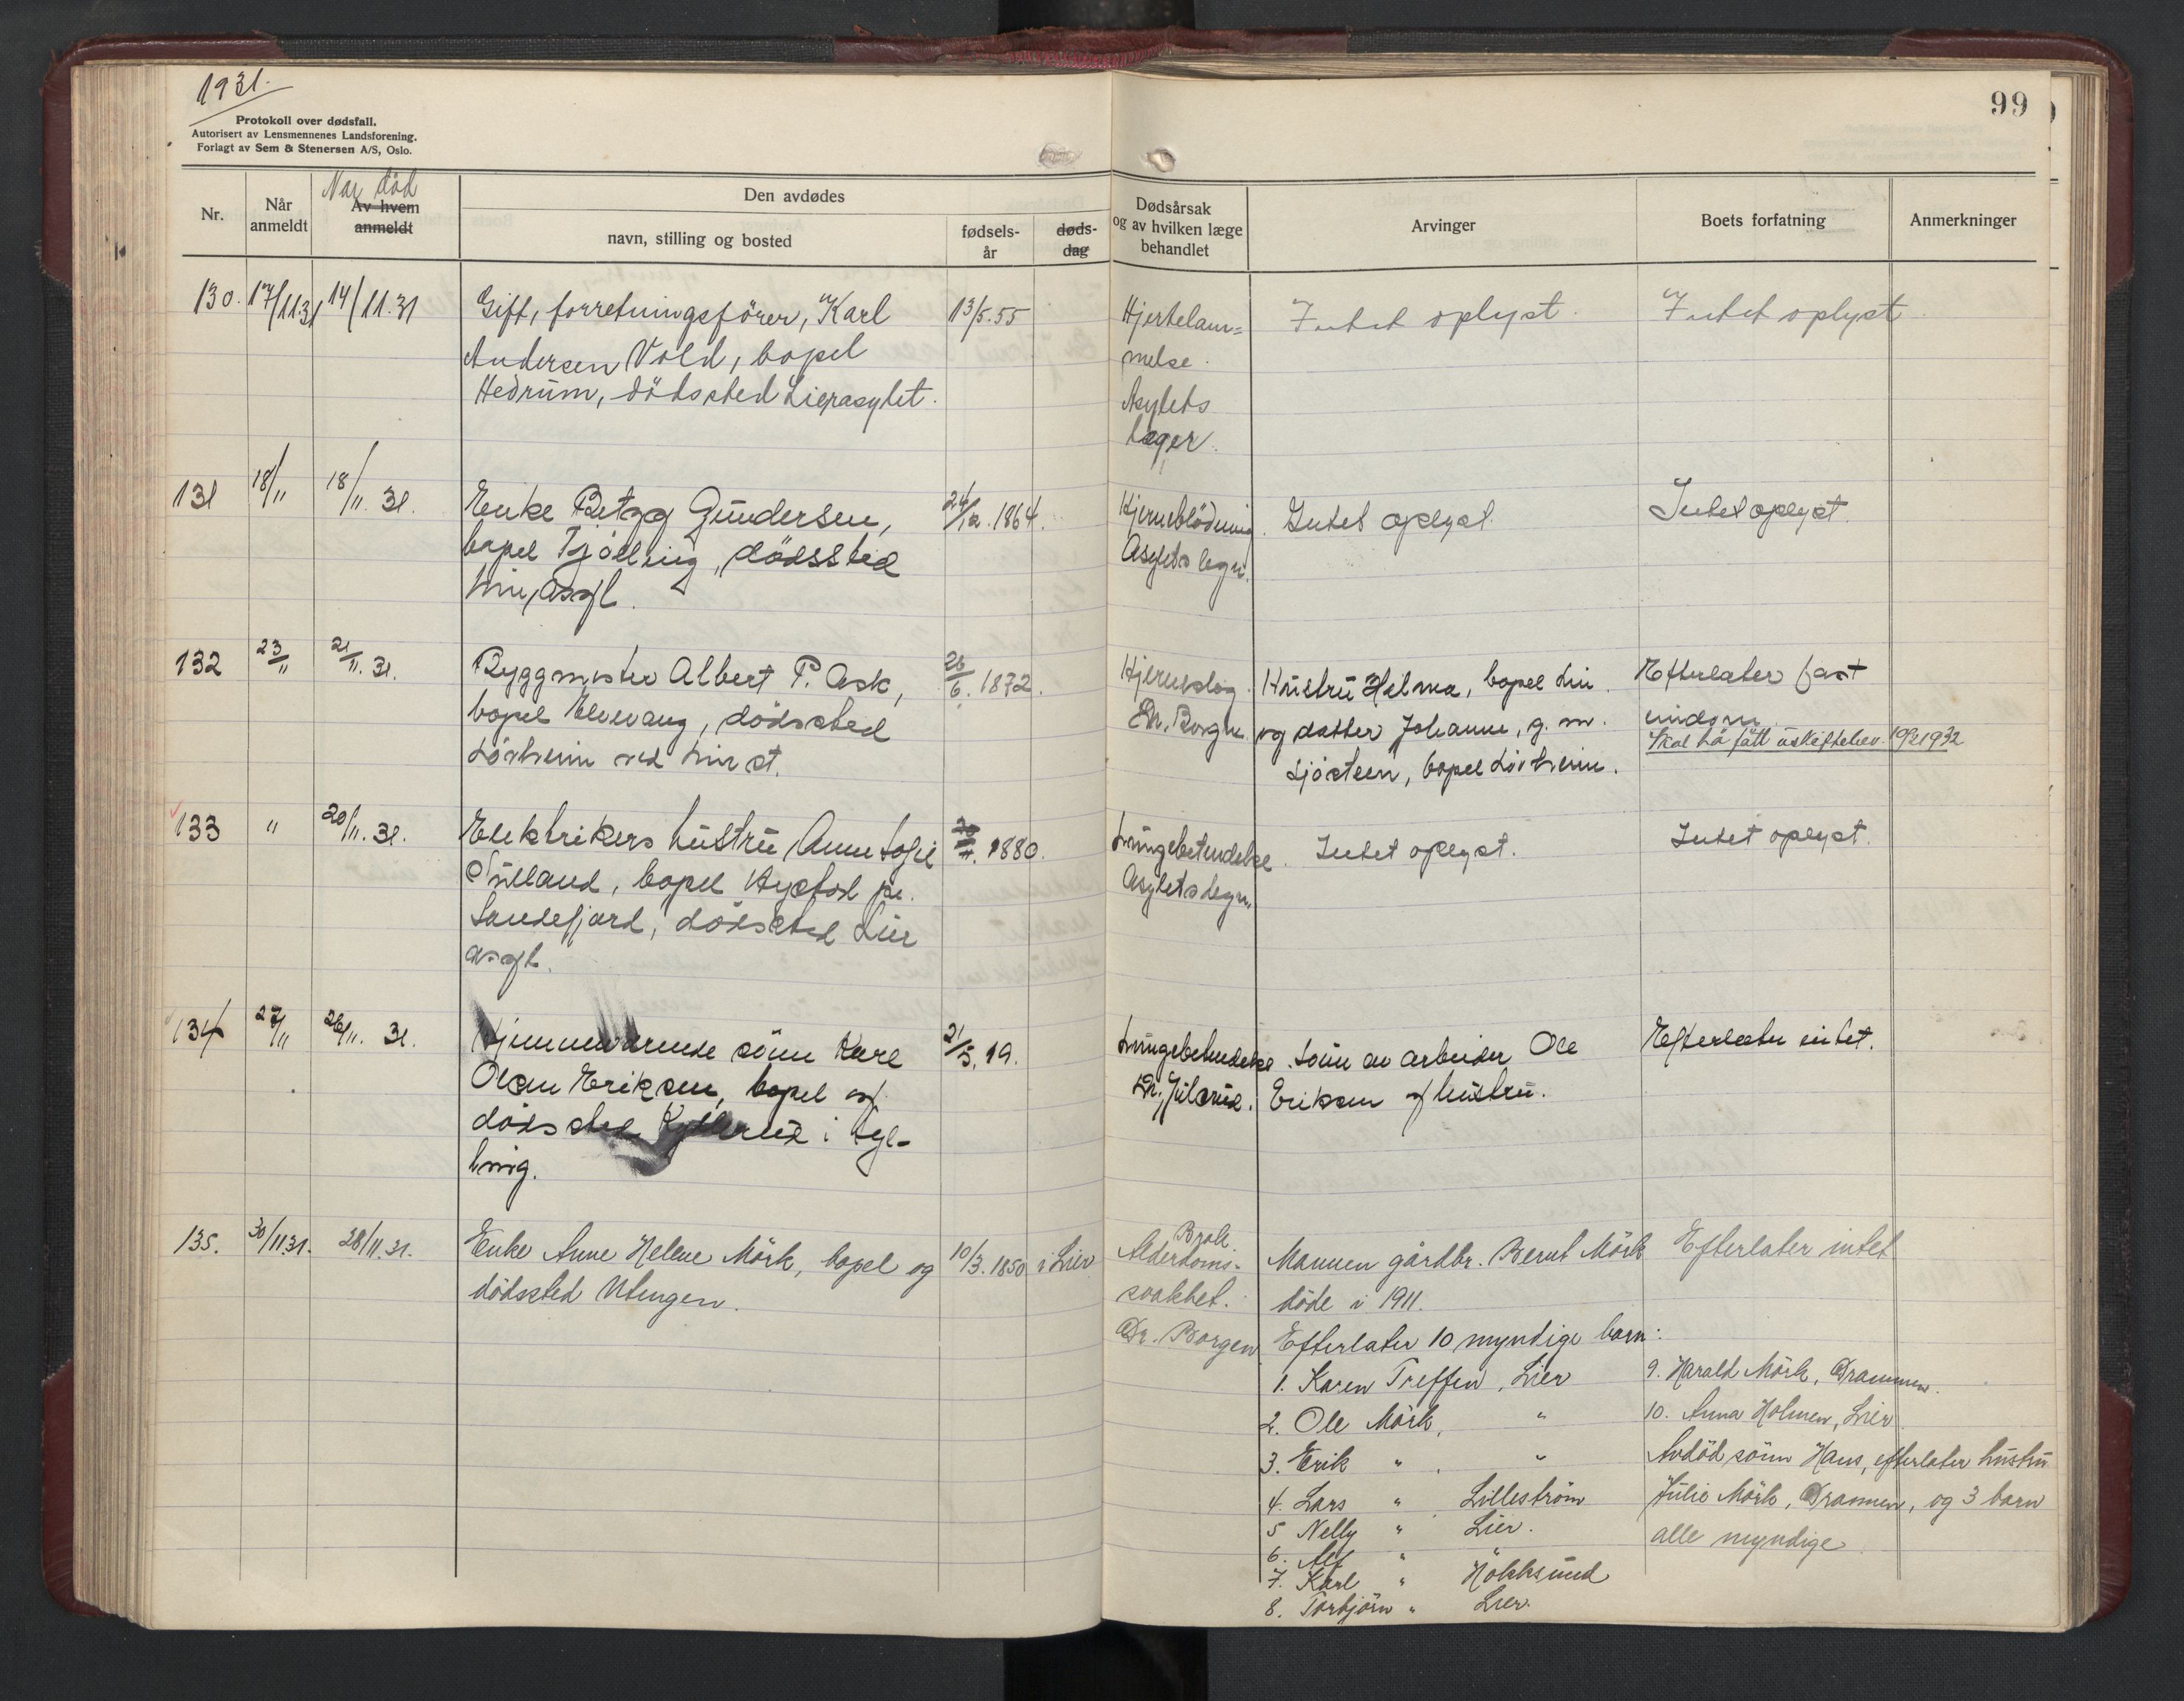 1931.
99
Protokoll over dødsfall.
Autorisert av Lensmennenes Landsforening.
Forlagt av Sem & Stenersen A/S, Oslo.
Nr.
Når anmeldt
Når död
Av hvem anmeldt
Den avdødes
navn, stilling og bosted
fødsels-år
døds-dag
Dødsårsak og av hvilken læge behandlet
Arvinger
Boets forfatning
Anmerkninger
130. 17/11.31 14/11.31
Gift, forretningsförer, Karl
Andersen Vold, bopel
Hedrum, dödssted Lierasylet.
13/5.55
Hjertelam=
melse.
Asylets
læger.
Intet oplyst.
Intet oplyst.
131 18/11 18/11. 31.
Enke Betzy Gundersen,
bopel Tjölling, dödssted
Lier Asyl.
24/12. 1864.
Hjerneblödning.
Asylets legn.
Intet oplyst.
Intet oplyst.
132 23/11 21/11. 31.
Byggmester Albert P. Ask,
bopel Elvevang, dödssted
Lövheim ved Lier st.
26/6. 1872.
Hjerneslag.
Dr. Borgn.
Hustru Hilma, bopel Lier.
og datter Johanne, g. m.
Sjösteen, bopel Lövheim.
Efterlater fast
eindom.
Skal ha fått uskiftebev. 10/2 1932
133 " 20/11. 31.
Elektrikers hustru Anne Sofie
Sulland, bopel Nystad pr.
Sandefjord, dödssted Lier
asyl.
1880.
Lungebetendelse.
Asylets legn.
Intet oplyst.
Intet oplyst.
134 27/11 26/11. 31.
Hjemmeværende sönn Karl
Olsen Eriksen, bopel og
dödssted i Syl-
ling.
21/5. 19.
Lungebetendelse.
Dr. Julsrud.
Sönn av arbeider Ole
Eriksen og hustru.
Efterlater intet.
135. 30/11.31. 28/11.31.
Enke Anne Helene Mörk, bopel og
dödssted Utengen.
10/3. 1850 i Lier
Brok.
Alderdoms-
svakhet.
Dr. Borgen
Mannen gårdbr. Bernt Mörk
döde i 1911.
Efterlater 10 myndige barn:
1. Karen Treffen, Lier
2. Ole Mörk, "
3. Erik " . "
4. Lars " Lilleström
5 Nelly " Lier.
6. Alf " "
7. Karl " Hokksund
8. Torbjörn " Lier.
Efterlater intet
9. Harald Mörk, Drammen.
10. Anna Holmen, Lier
Avdöd sönn Hans, efterlater hustru
Julie Mörk, Drammen, og 3 barn
alle myndige.